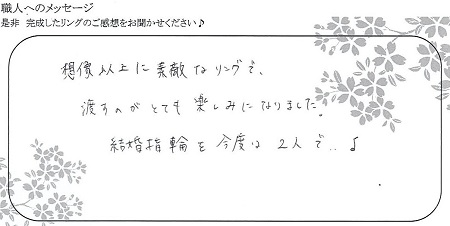 職人へのメッセージ
是非 完成したリングのご感想をお聞かせください♪
想像以上に素敵なリングで、
渡すのがとても楽しみになりました。
結婚指輪を今度は2人で..♪